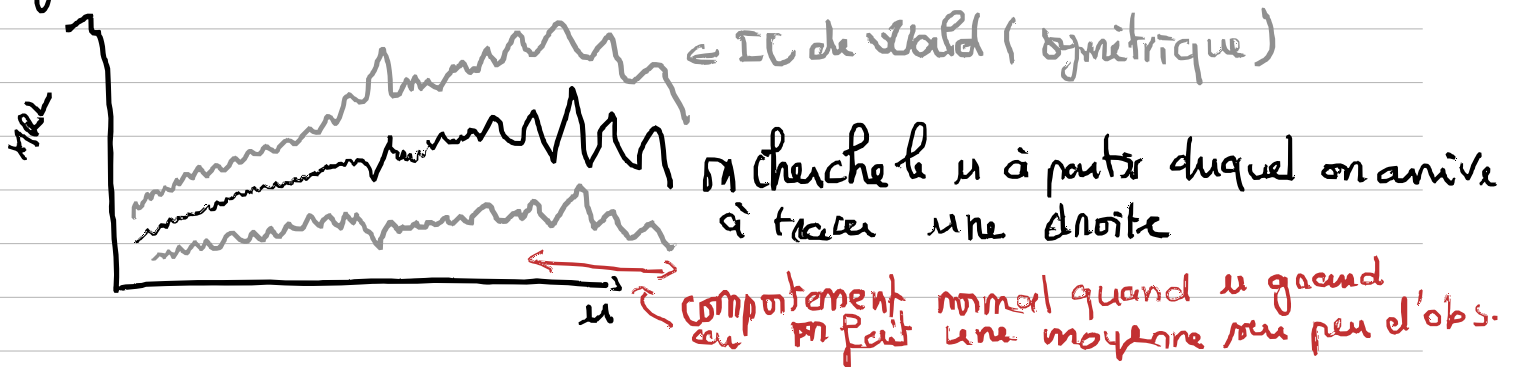 ⇐ IC de Wald (symétrique)
MRL
on cherche le u à partir duquel on arrive
à tracer une droite
u
comportement normal quand u grand
car on fait une moyenne sur peu d'obs.